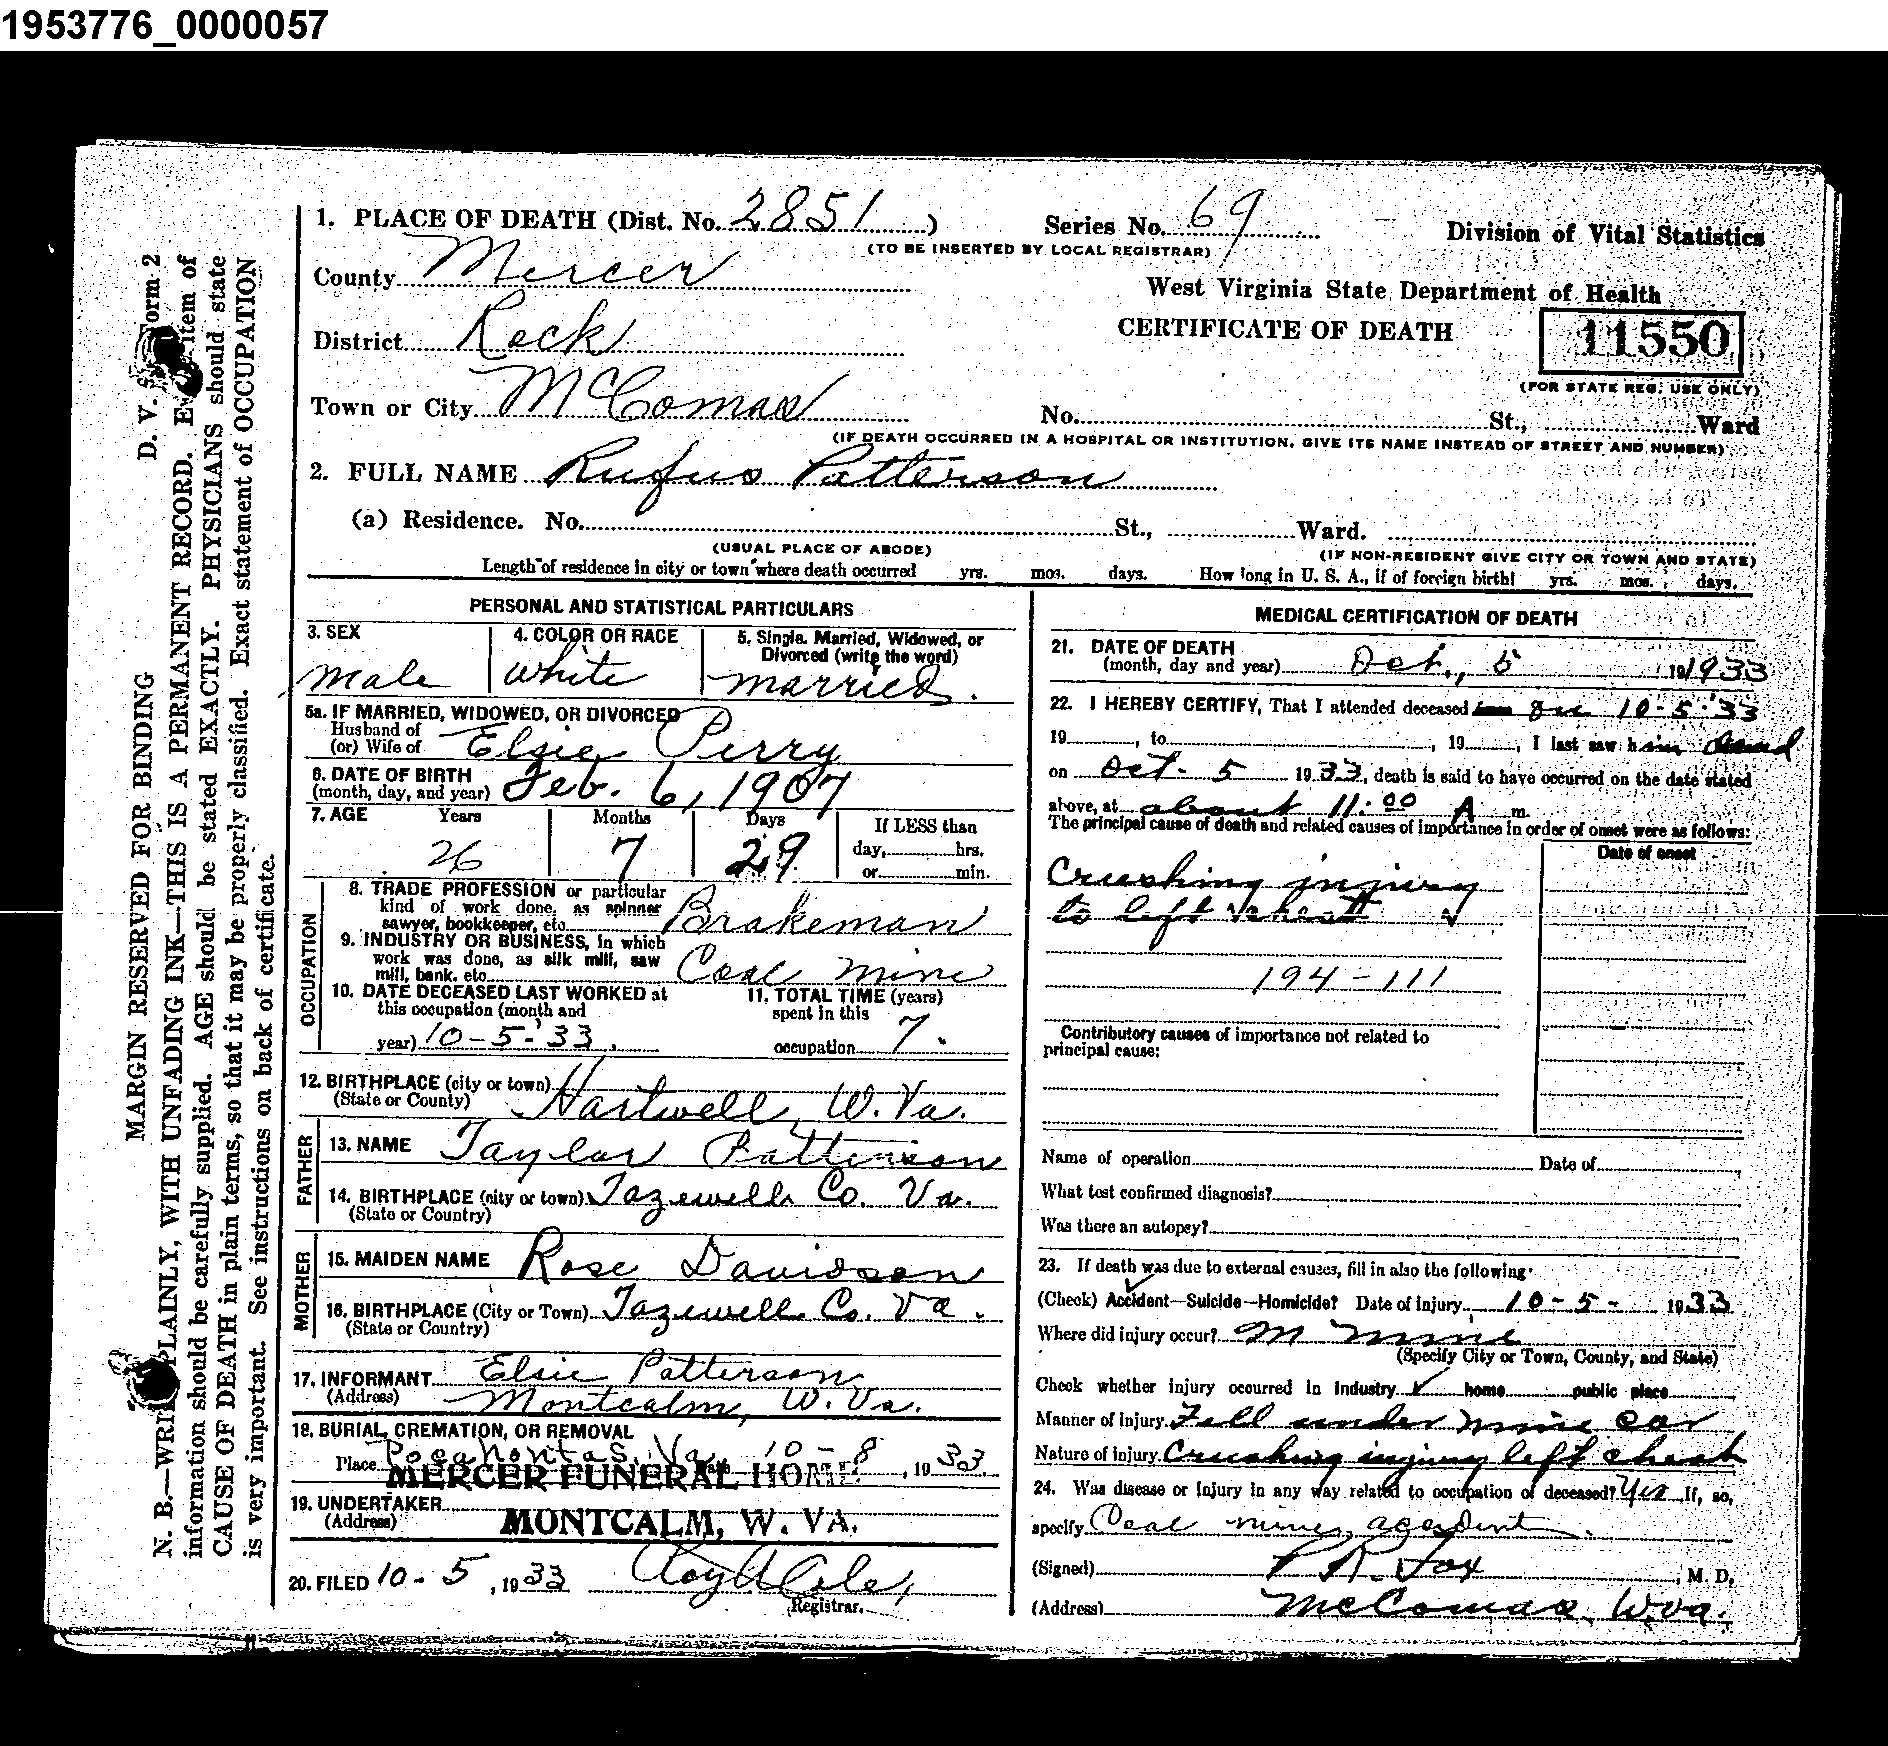 1953776_0000057
1. PLACE OF DEATH (Dist. No. 2851) Series No. 69 Division of Vital Statistics
(TO BE INSERTED BY LOCAL REGISTRAR)
County Mercer West Virginia State Department of Health
District Rock CERTIFICATE OF DEATH 11550
(FOR STATE REG. USE ONLY)
Town or City McComas No. St., Ward
(IF DEATH OCCURRED IN A HOSPITAL OR INSTITUTION, GIVE ITS NAME INSTEAD OF STREET AND NUMBER)
2. FULL NAME Rufus Patterson
(a) Residence. No. St., Ward.
(USUAL PLACE OF ABODE) (IF NON-RESIDENT GIVE CITY OR TOWN AND STATE)
Length of residence in city or town where death occurred yrs. mos. days. How long in U. S. A., if of foreign birth! yrs. mos. days.
PERSONAL AND STATISTICAL PARTICULARS
3. SEX 4. COLOR OR RACE 5. Single. Married, Widowed, or
Divorced (write the word)
male white married.
5a. IF MARRIED, WIDOWED, OR DIVORCED
Husband of
(or) Wife of Elsie Perry
6. DATE OF BIRTH
(month, day, and year) Feb. 6, 1907
7. AGE Years Months Days If LESS than
day, hrs.
26 7 29 or min.
OCCUPATION
8. TRADE PROFESSION or particular
kind of work done, as spinner
sawyer, bookkeeper, etc. Brakeman
9. INDUSTRY OR BUSINESS, in which
work was done, as silk mill, saw
mill, bank, etc. Coal mine
10. DATE DECEASED LAST WORKED at 11. TOTAL TIME (years)
this occupation (month and spent in this
year) 10-5-'33. occupation 7.
12. BIRTHPLACE (city or town)
(State or County) Hartwell, W. Va.
FATHER
13. NAME Taylor Patterson
14. BIRTHPLACE (city or town) Tazewell Co. Va.
(State or Country)
MOTHER
15. MAIDEN NAME Rose Davidson
16. BIRTHPLACE (City or Town) Tazewell Co. Va.
(State or Country)
17. INFORMANT Elsie Patterson
(Address) Montcalm, W. Va.
18. BURIAL, CREMATION, OR REMOVAL
Place Pocahontas, Va. 10-8, 1933.
MERCER FUNERAL HOME
19. UNDERTAKER
(Address) MONTCALM, W. VA.
20. FILED 10-5, 1933
Registrar.
MEDICAL CERTIFICATION OF DEATH
21. DATE OF DEATH
(month, day and year) Oct., 5 1933
22. I HEREBY CERTIFY, That I attended deceased on 10-5-'33
19 , to , 19 , I last saw him dead
on Oct. 5 1933, death is said to have occurred on the date stated
above, at about 11:00 A m.
The principal cause of death and related causes of importance in order of onset were as follows:
Date of onset
Crushing injury
to left chest
194-111
Contributory causes of importance not related to
principal cause:
Name of operation Date of
What test confirmed diagnosis?
Was there an autopsy?
23. If death was due to external causes, fill in also the following:
(Check) Accident—Suicide—Homicide? Date of injury 10-5- 1933
Where did injury occur? mine
(Specify City or Town, County, and State)
Check whether injury occurred in industry ✓ home public place
Manner of injury Fell under mine car
Nature of injury Crushing injury left chest
24. Was disease or injury in any way related to occupation of deceased? Yes If, so,
specify Coal mine accident.
(Signed) Fox, M. D.
(Address) McComas, W. Va.
MARGIN RESERVED FOR BINDING D. V. Form 2
N. B.—WRITE PLAINLY, WITH UNFADING INK—THIS IS A PERMANENT RECORD. Every item of
information should be carefully supplied. AGE should be stated EXACTLY. PHYSICIANS should state
CAUSE OF DEATH in plain terms, so that it may be properly classified. Exact statement of OCCUPATION
is very important. See instructions on back of certificate.